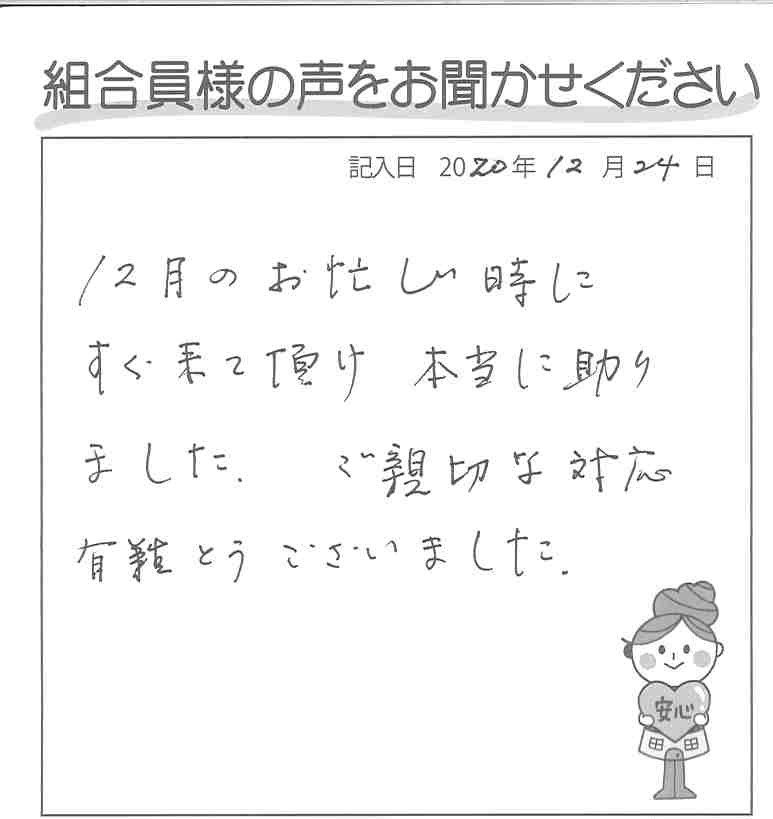 組合員様の声をお聞かせください
記入日 2020年12月24日
12月のお忙しい時に
すぐ来て頂け 本当に助り
ました. ご親切な対応
有難とうございました.
安心